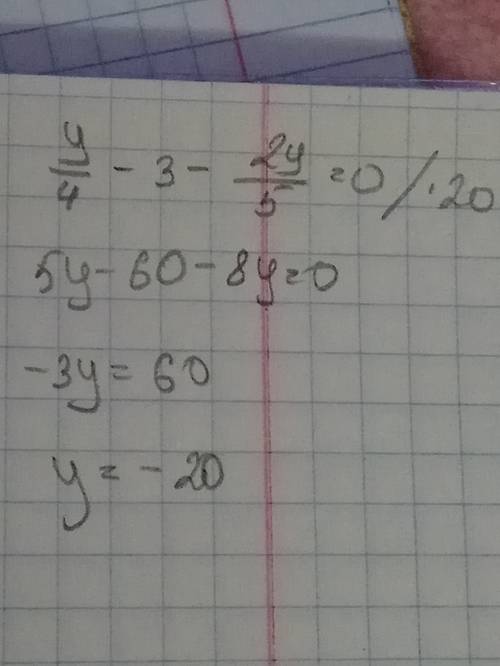 y/4 - 3 - 2y/5 = 0 / · 20
5y - 60 - 8y = 0
-3y = 60
y = -20